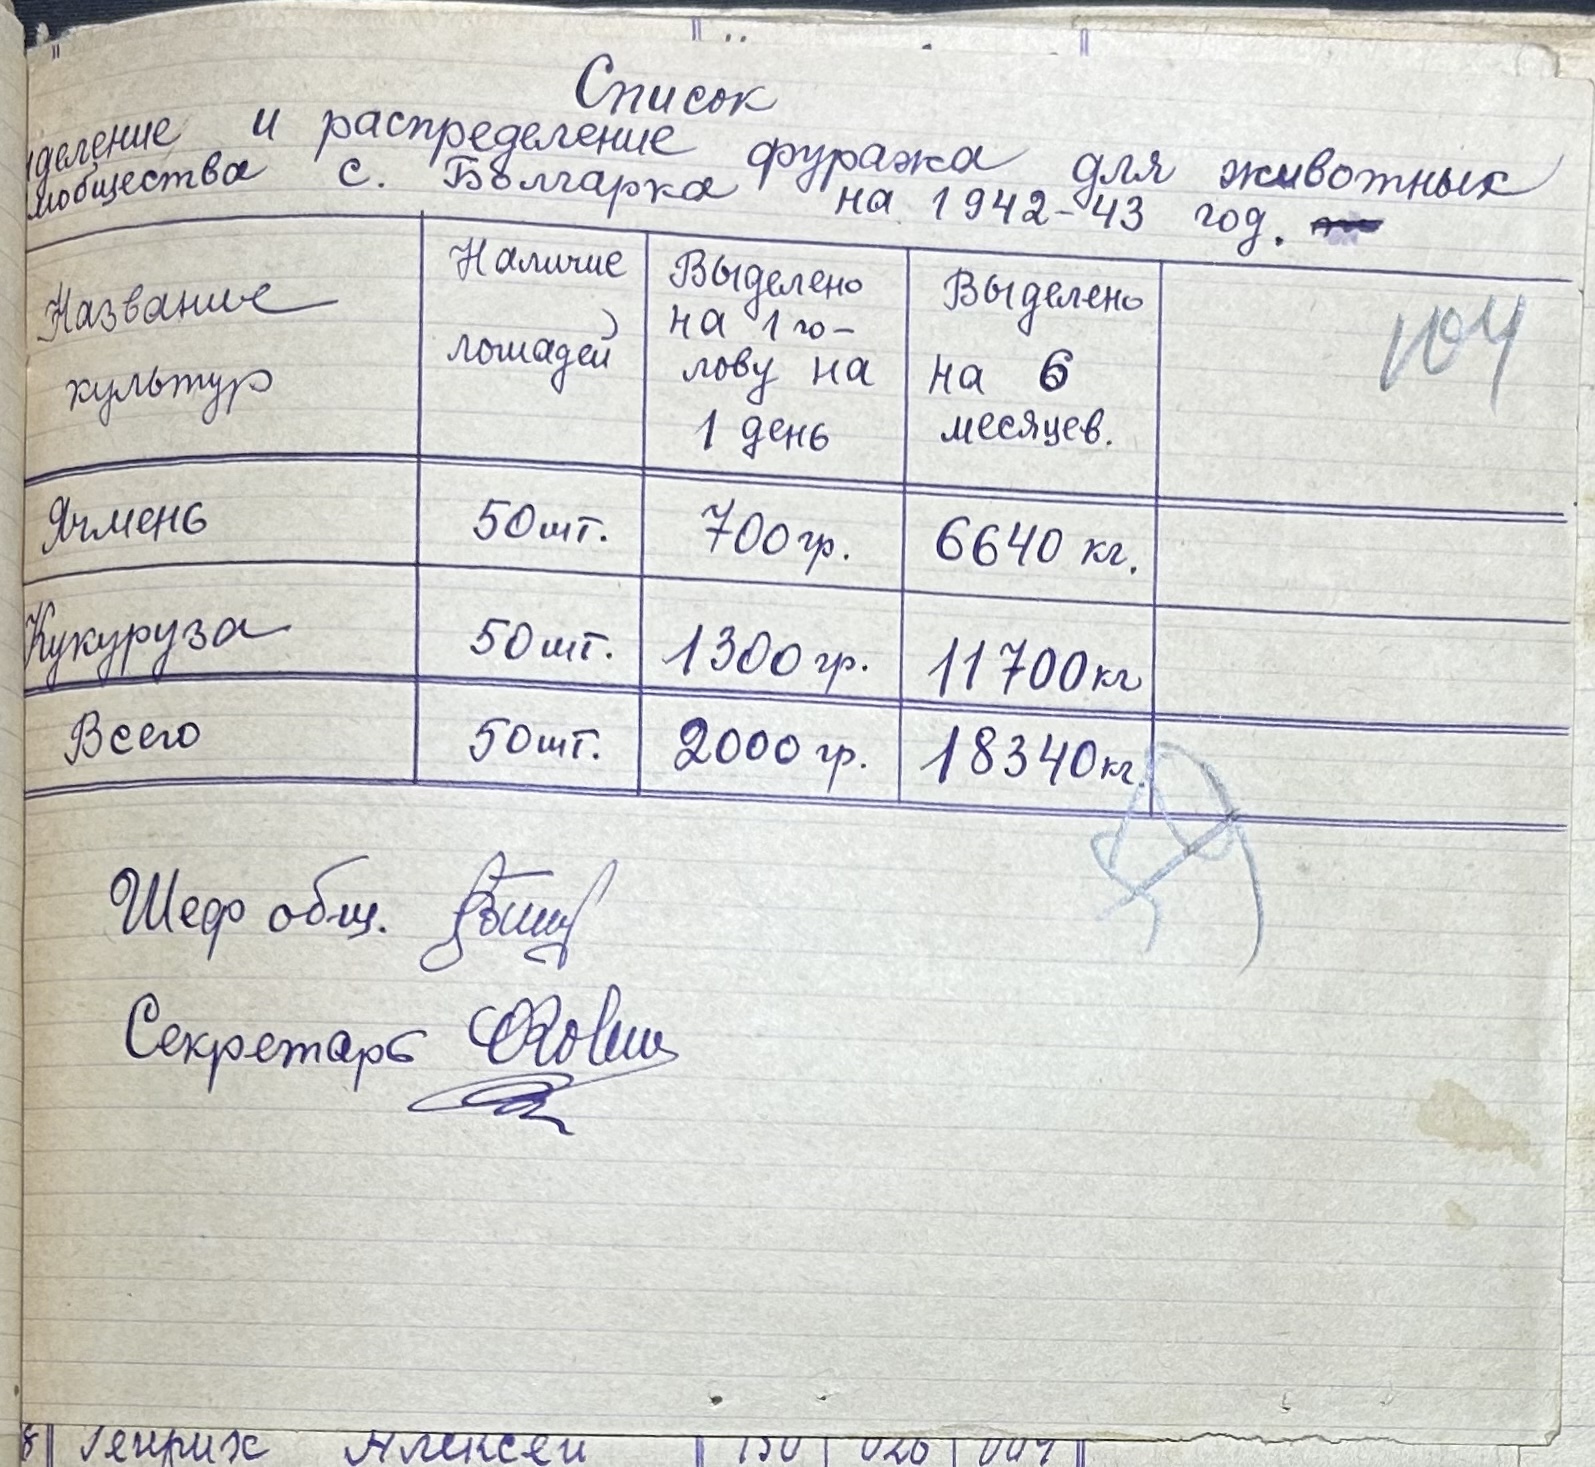 Список
деление и распределение фуража для животных
общества с. Болгарка на 1942-43 год.
Название культур
Наличие лошадей
Выделено на 1 го-
лову на 1 день
Выделено на 6 месяцев.
104
Ячмень 50 шт. 700 гр. 6640 кг.
Кукуруза 50 шт. 1300 гр. 11700 кг
Всего 50 шт. 2000 гр. 18340 кг.
Шеф общ.
Секретарь
8 Генрих Алексей 130 026 004